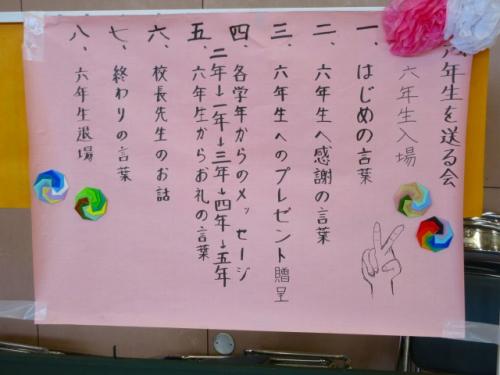 年生を送る会
六年生入場
一、はじめの言葉
二、六年生へ感謝の言葉
三、六年生へのプレゼント贈呈
四、各学年からのメッセージ
二年→一年→三年→四年→五年
五、六年生からお礼の言葉
六、校長先生のお話
七、終わりの言葉
八、六年生退場